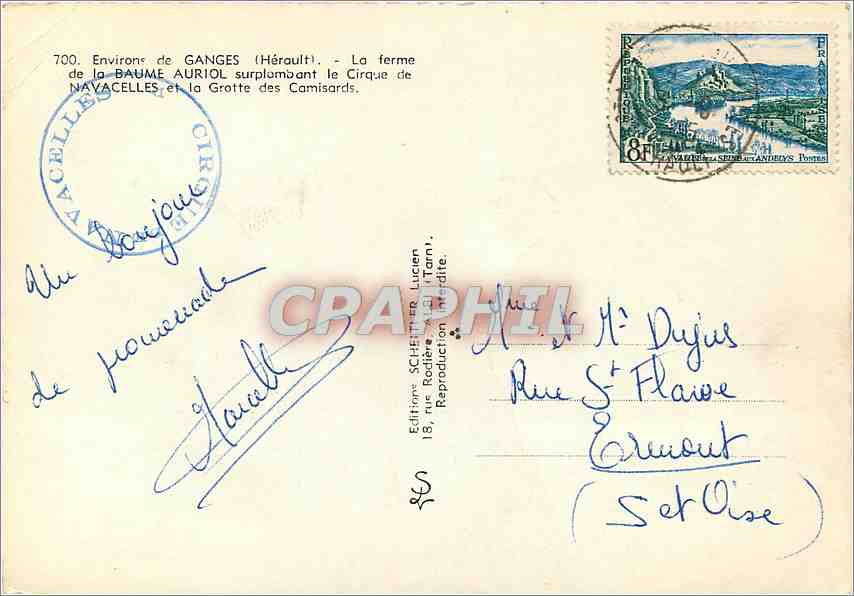 700. Environs de GANGES (Hérault). - La ferme
de la BAUME AURIOL surplombant le Cirque de
NAVACELLES et la Grotte des Camisards.
CIRQUE NAVACELLES
Un bonjour
de promenade
Marcelle
Editions SCHEITLER Lucien
18, rue Rodière, ALBI (Tarn).
Reproduction Interdite.
CPRAPHIL
REPUBLIQUE FRANÇAISE
8F LA VALLÉE DE LA SEINE AUX ANDELYS POSTES
Mme & Mr Dujus
Rue St Flaive
Ermont
(S et Oise)